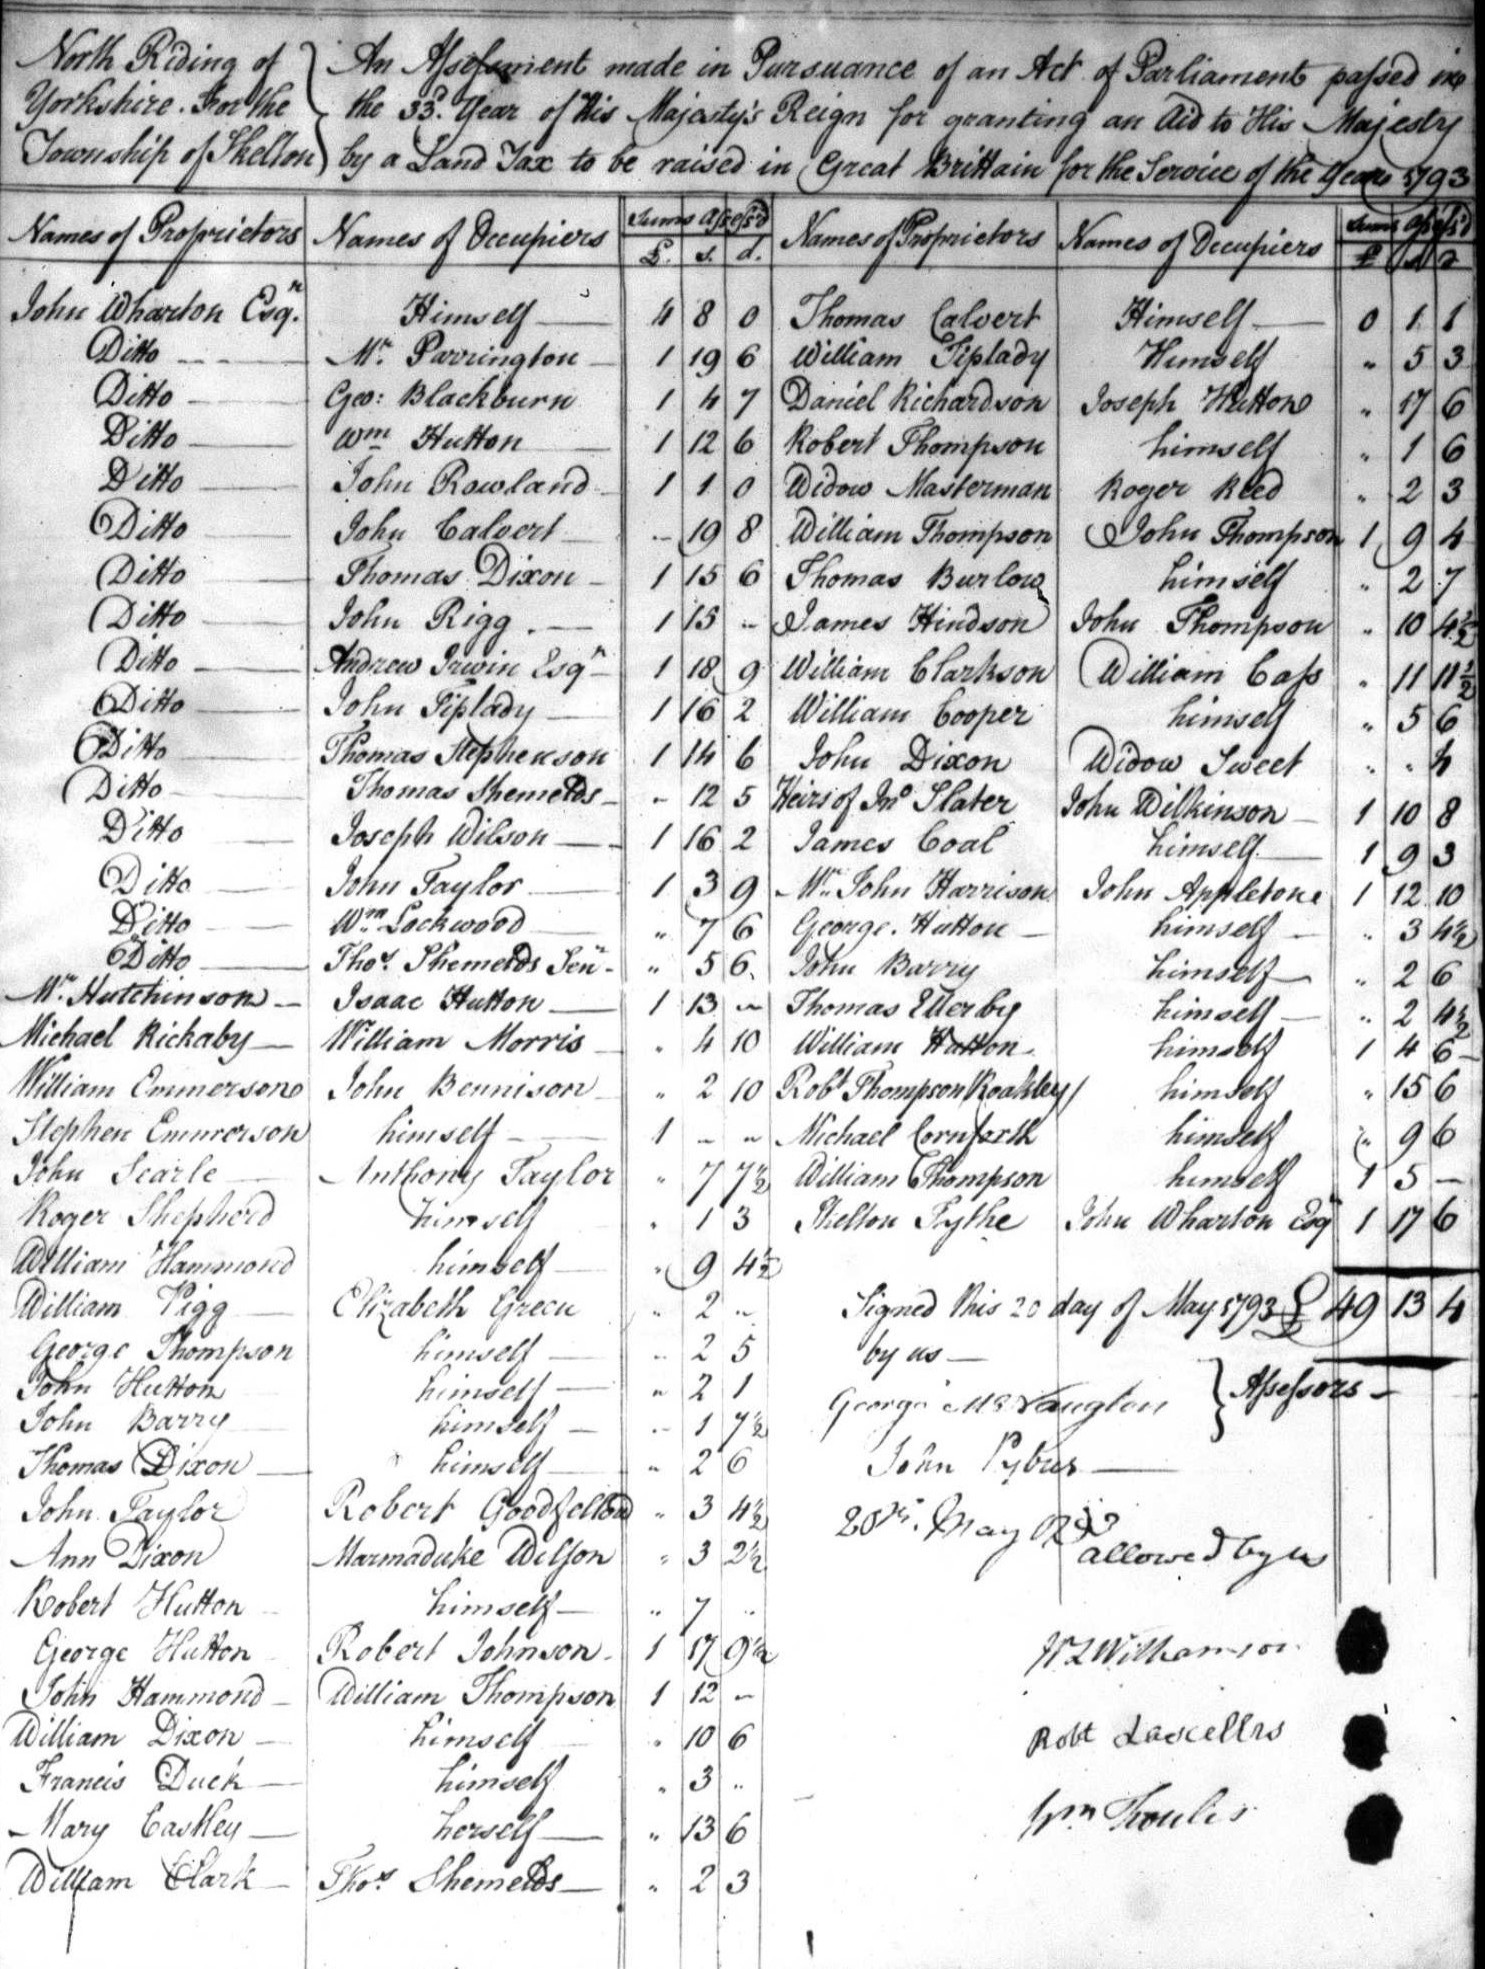 North Riding of
Yorkshire. For the
Township of Skelton
An Assessment made in Pursuance of an Act of Parliament passed in
the 33d. Year of His Majesty's Reign for granting an Aid to His Majesty
by a Land Tax to be raised in Great Brittain for the Service of the Year 1793
Names of Proprietors Names of Occupiers Sums Assess'd
£. s. d.
John Wharton Esqr. Himself 4 8 0
Ditto Mr. Parrington 1 19 6
Ditto Geo: Blackburn 1 4 7
Ditto Wm Hutton 1 12 6
Ditto John Rowland 1 1 0
Ditto John Calvert - 19 8
Ditto Thomas Dixon 1 15 6
Ditto John Rigg 1 15 "
Ditto Andrew Irwin Esqr 1 18 9
Ditto John Tiplady 1 16 2
Ditto Thomas Stephenson 1 14 6
Ditto Thomas Shemelds " 12 5
Ditto Joseph Wilson 1 16 2
Ditto John Taylor 1 3 9
Ditto Wm Lockwood " 7 6
Ditto Thos. Shemelds Senr. " 5 6
Mr. Hutchinson Isaac Hutton 1 13 "
Michael Rickaby William Morris " 4 10
William Emmerson John Bennison " 2 10
Stephen Emmerson himself 1 " "
John Searle Anthony Taylor " 7 7½
Roger Shepherd himself " 1 3
William Hammond himself " 9 4½
William Pigg Elizabeth Green " 2 "
George Thompson himself " 2 5
John Hutton himself " 2 1
John Barry himself " 1 7½
Thomas Dixon himself " 2 6
John Taylor Robert Goodfellow " 3 4½
Ann Dixon Marmaduke Wilson " 3 2½
Robert Hutton himself " 7 "
George Hutton Robert Johnson 1 17 9½
John Hammond William Thompson 1 12 "
William Dixon himself " 10 6
Francis Duck himself " 3 "
Mary Castley herself " 13 6
William Clark Thos. Shemelds " 2 3
Names of Proprietors Names of Occupiers Sums Assess'd
£ s d
Thomas Calvert Himself 0 1 1
William Tiplady Himself " 5 3
Daniel Richardson Joseph Hutton " 17 6
Robert Thompson himself " 1 6
Widow Masterman Roger Reed " 2 3
William Thompson John Thompson 1 9 4
Thomas Burlow himself " 2 7
James Hindson John Thompson " 10 4½
William Clarkson William Cass " 11 11½
William Cooper himself " 5 6
John Dixon Widow Sweet " " 4
Heirs of Jno Slater John Wilkinson 1 10 8
James Coal himself 1 9 3
Mr. John Harrison John Appleton 1 12 10
George Hutton himself " 3 4½
John Barry himself " 2 6
Thomas Ellerby himself " 2 4½
William Hutton himself 1 4 6
Robt Thompson Roakley himself " 15 6
Michael Cornforth himself " 9 6
William Thompson himself 1 5 -
Skelton Tythe John Wharton Esqr 1 17 6
Signed this 20 day of May 1793 £ 49 13 4
by us
George McNaugton
Assessors
John Pybus
20th. May 1793
allowed by us
Robt Lascelles
Wm Foulis